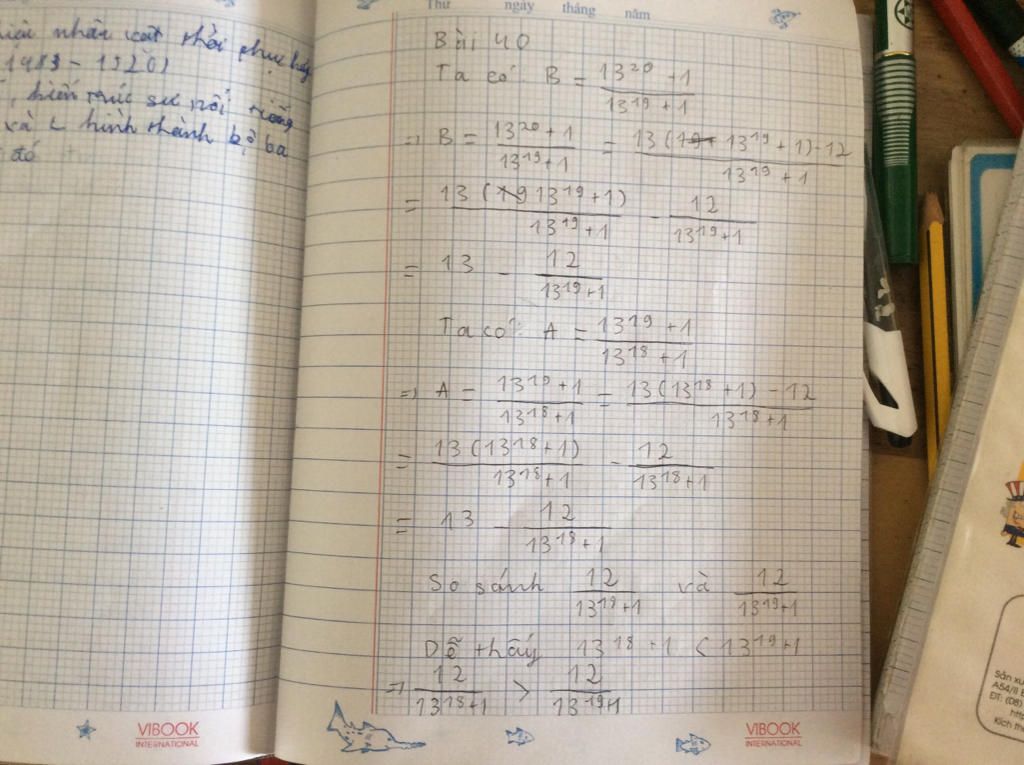 nhân vật thời phục
1483 - 1520)
, hiến thức sư nối riêng
và L hình thành bộ ba
đó
Thứ ngày tháng năm
Bài 40
Ta có B = \frac{13^{20} + 1}{13^{19} + 1}
=> B = \frac{13^{20} + 1}{13^{19} + 1} = \frac{13(13^{19} + 1) - 12}{13^{19} + 1}
= \frac{13(13^{19} + 1)}{13^{19} + 1} - \frac{12}{13^{19} + 1}
= 13 - \frac{12}{13^{19} + 1}
Ta có: A = \frac{13^{19} + 1}{13^{18} + 1}
=> A = \frac{13^{19} + 1}{13^{18} + 1} = \frac{13(13^{18} + 1) - 12}{13^{18} + 1}
= \frac{13(13^{18} + 1)}{13^{18} + 1} - \frac{12}{13^{18} + 1}
= 13 - \frac{12}{13^{18} + 1}
So sánh \frac{12}{13^{18} + 1} và \frac{12}{13^{19} + 1}
Dễ thấy 13^{18} + 1 < 13^{19} + 1
=> \frac{12}{13^{18} + 1} > \frac{12}{13^{19} + 1}
VIBOOK
INTERNATIONAL
VIBOOK
INTERNATIONAL
Sản xu
A54/II
ĐT: (08)
Kích th